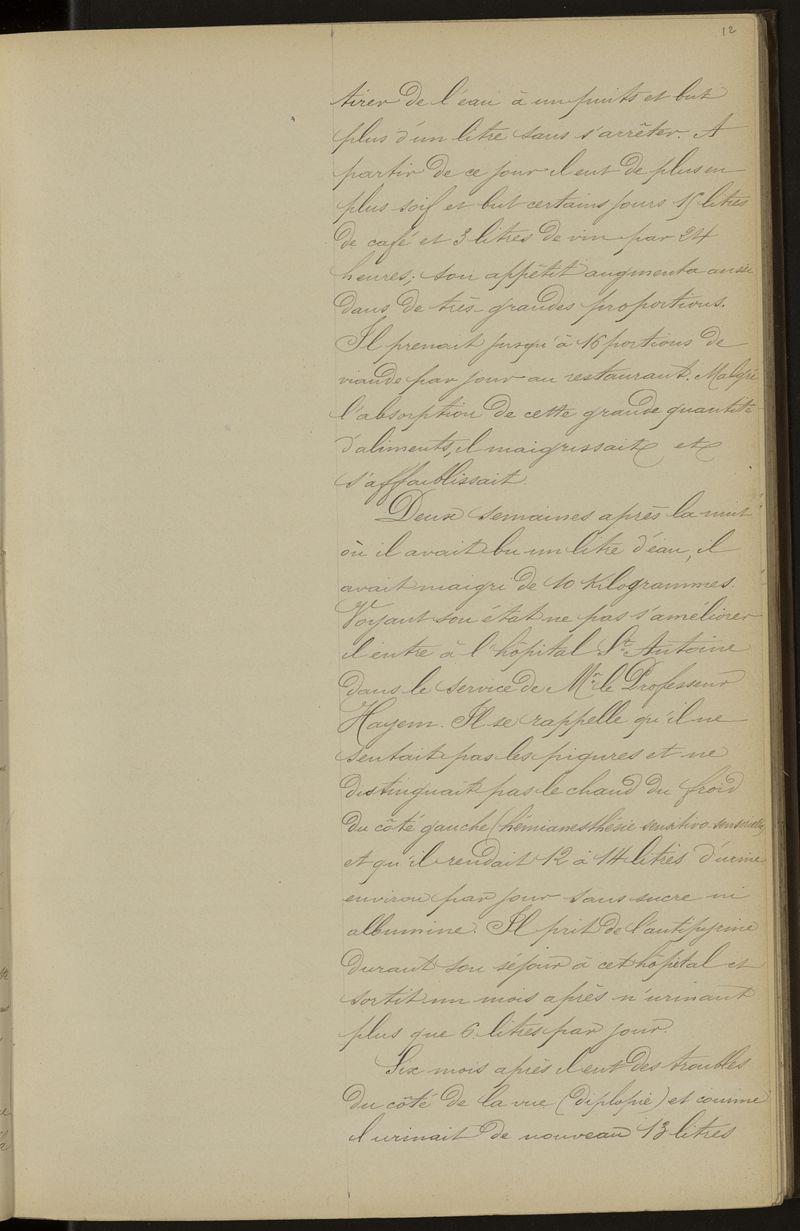 12
tirer de l'eau à un puits et but
plus d'un litre sans s'arrêter. A
partir de ce jour il eut de plus en
plus soif et but certains jours 15 litres
de café et 3 litres de vin par 24
heures; son appétit augmenta aussi
dans de très-grandes proportions.
Il prenait jusqu'à 16 portions de
viande par jour au restaurant. Malgré
l'absorption de cette grande quantité
d'aliments, il maigrissait et
s'affaiblissait.
Deux semaines après la nuit
où il avait bu un litre d'eau, il
avait maigri de 10 kilogrammes.
Voyant son état ne pas s'améliorer
il entre à l'hôpital St. Antoine
dans le service de Mr. le Professeur
Hayem. Il se rappelle qu'il ne
sentait pas les piqures et ne
distinguait pas le chaud du froid
du côté gauche (hémianesthésie sensitivo-sensorielle)
et qu'il rendait 12 à 14 litres d'urine
environ par jour sans sucre ni
albumine. Il prit de l'antipyrine
durant son séjour à cet hôpital et
sortit un mois après n'urinant
plus que 6 litres par jour.
Six mois après il eut des troubles
du côté de la vue (diplopie) et comme
il urinait de nouveau 13 litres